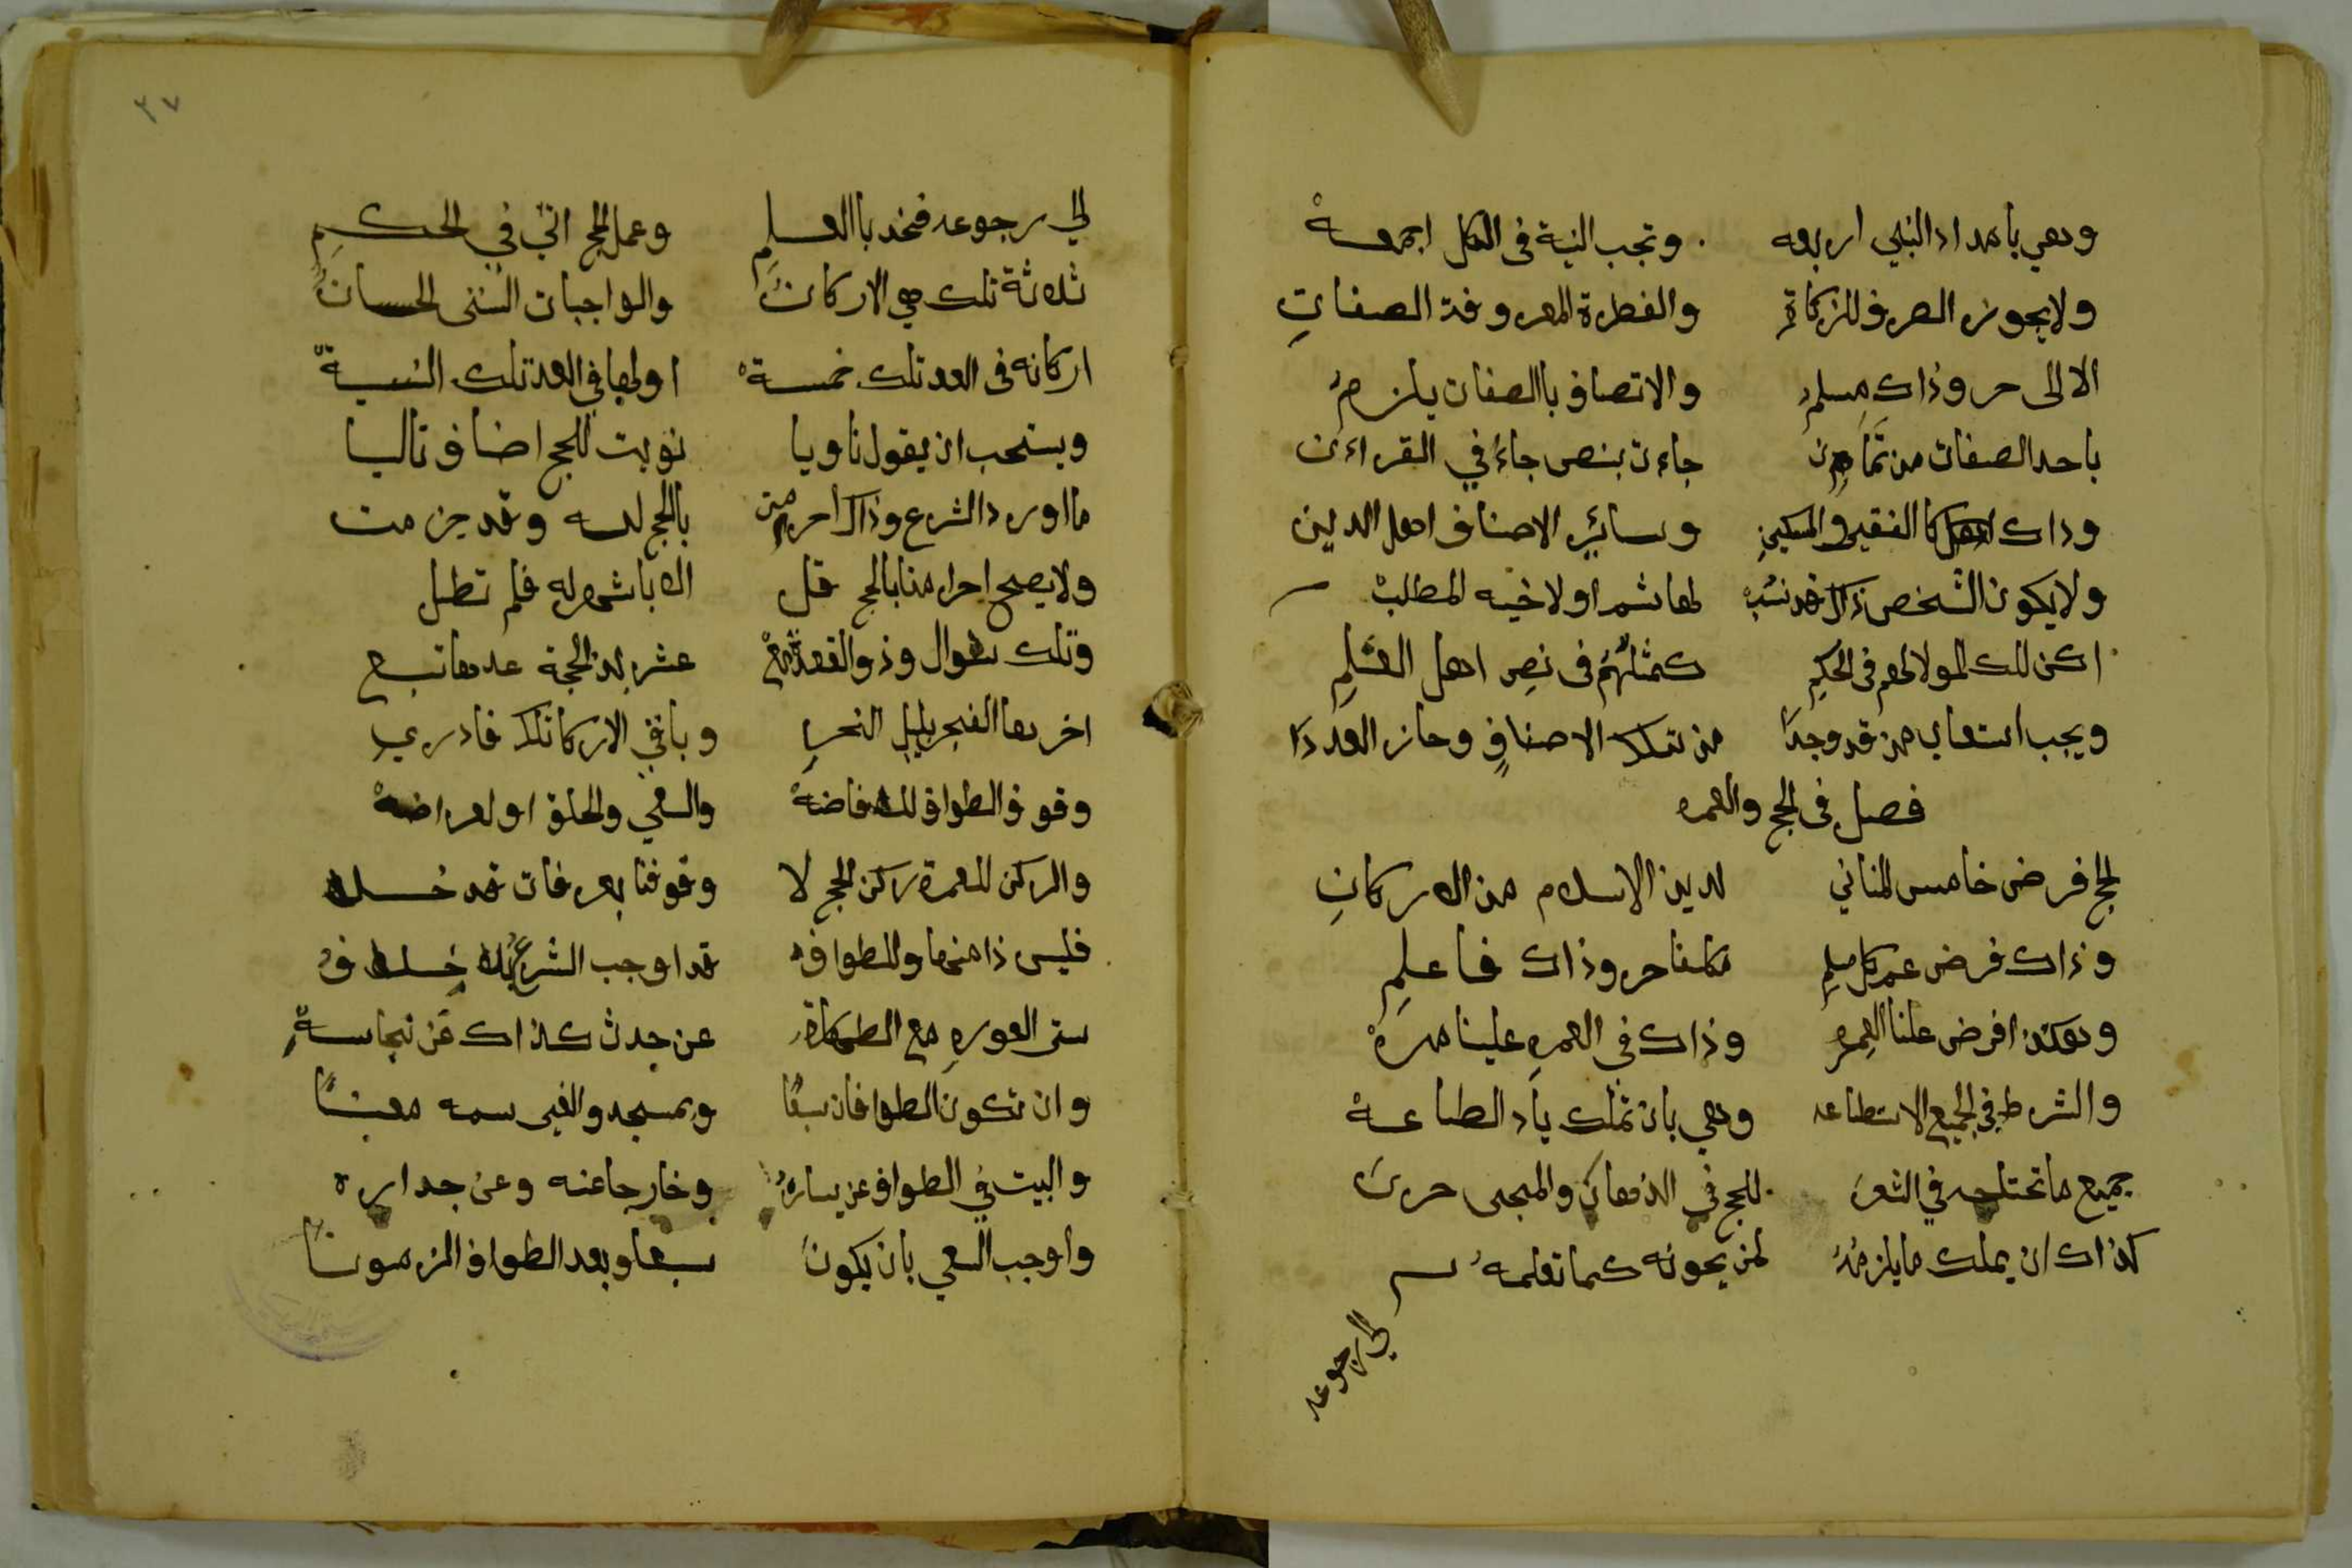 وهي بامداد النبي اربعه وتجب النية فى الكل اجمعة
ولايجوز الصرف للزكاة والفطرة المعروفة الصفات
الا الى حر وذاك مسلم والاتصاف باالصفات يلزم
باحد الصفات من ثمان جاءت بنص جاء في القراءن
وذاك كا الفقير والمسكين وسائر الاصناف اهل الدين
ولايكون الشخص ذاك قد نسب لهاشم او لاخيه المطلب
كذلك المولا لهم فى الحكم كمثلهم فى نص اهل العلم
ويجب استعاب من قد وجدا من تلك الاصناف وحاز العددا
فصل فى الحج والعمره
الحج فرض خامس المثاني لدين الاسلام من الاركان
وذاك فرض عم كل مسلم مكلفا حر وذاك فاعلم
وهكذا فرض علنا العمره وذاك فى العمر علينا مرة
والشرط في الجميع الاستطاعه وهي بان تملك ياد الطاعة
جميع ما تحتاجه في للحج في الذهاب والمجى حرى
كذاك ان يملك مايلزمه لمن يمونه كما تعلمه
الى رجوعه
الى رجوعه فخذ باالعلم وعمل الحج اتى في الحكم
ثلاثة تلك هي الاركان والواجبات السنن الحسان
اركانه فى العد تلك خمسة اولها في العد تلك النية
ويستحب ان يقول ناويا نويت للحج اضاف تاليا
ما اورد الشرع وذاك احرمت بالحج لله وقد جزمت
ولايصح احرامنا بالحج قل الا باشهر له فلم تطل
وتلك شوال وذو القعدة مع عشر لذ الحجة عدها تبع
اخرها الفجر بليل النحر وباقي الاركان تلك فادري
وقوف الطواف للافاضة والسعي والحلق او
والركن للعمرة ركن الحج لا وقوفنا بعرفات قد خلا
فليس ذا منها وللطواف قد اوجب الشرع بلا خلاف
ستر العوره مع الطهارة عن حدث كذاك عن نجاسة
وان تكون الطوافات سبعا وبمسجد
والبيت في الطواف عن يساره وخارجا عنه وعن جداره
واوجب السعي بان يكون سبعا وبعد الطواف الزمونا
٣٧